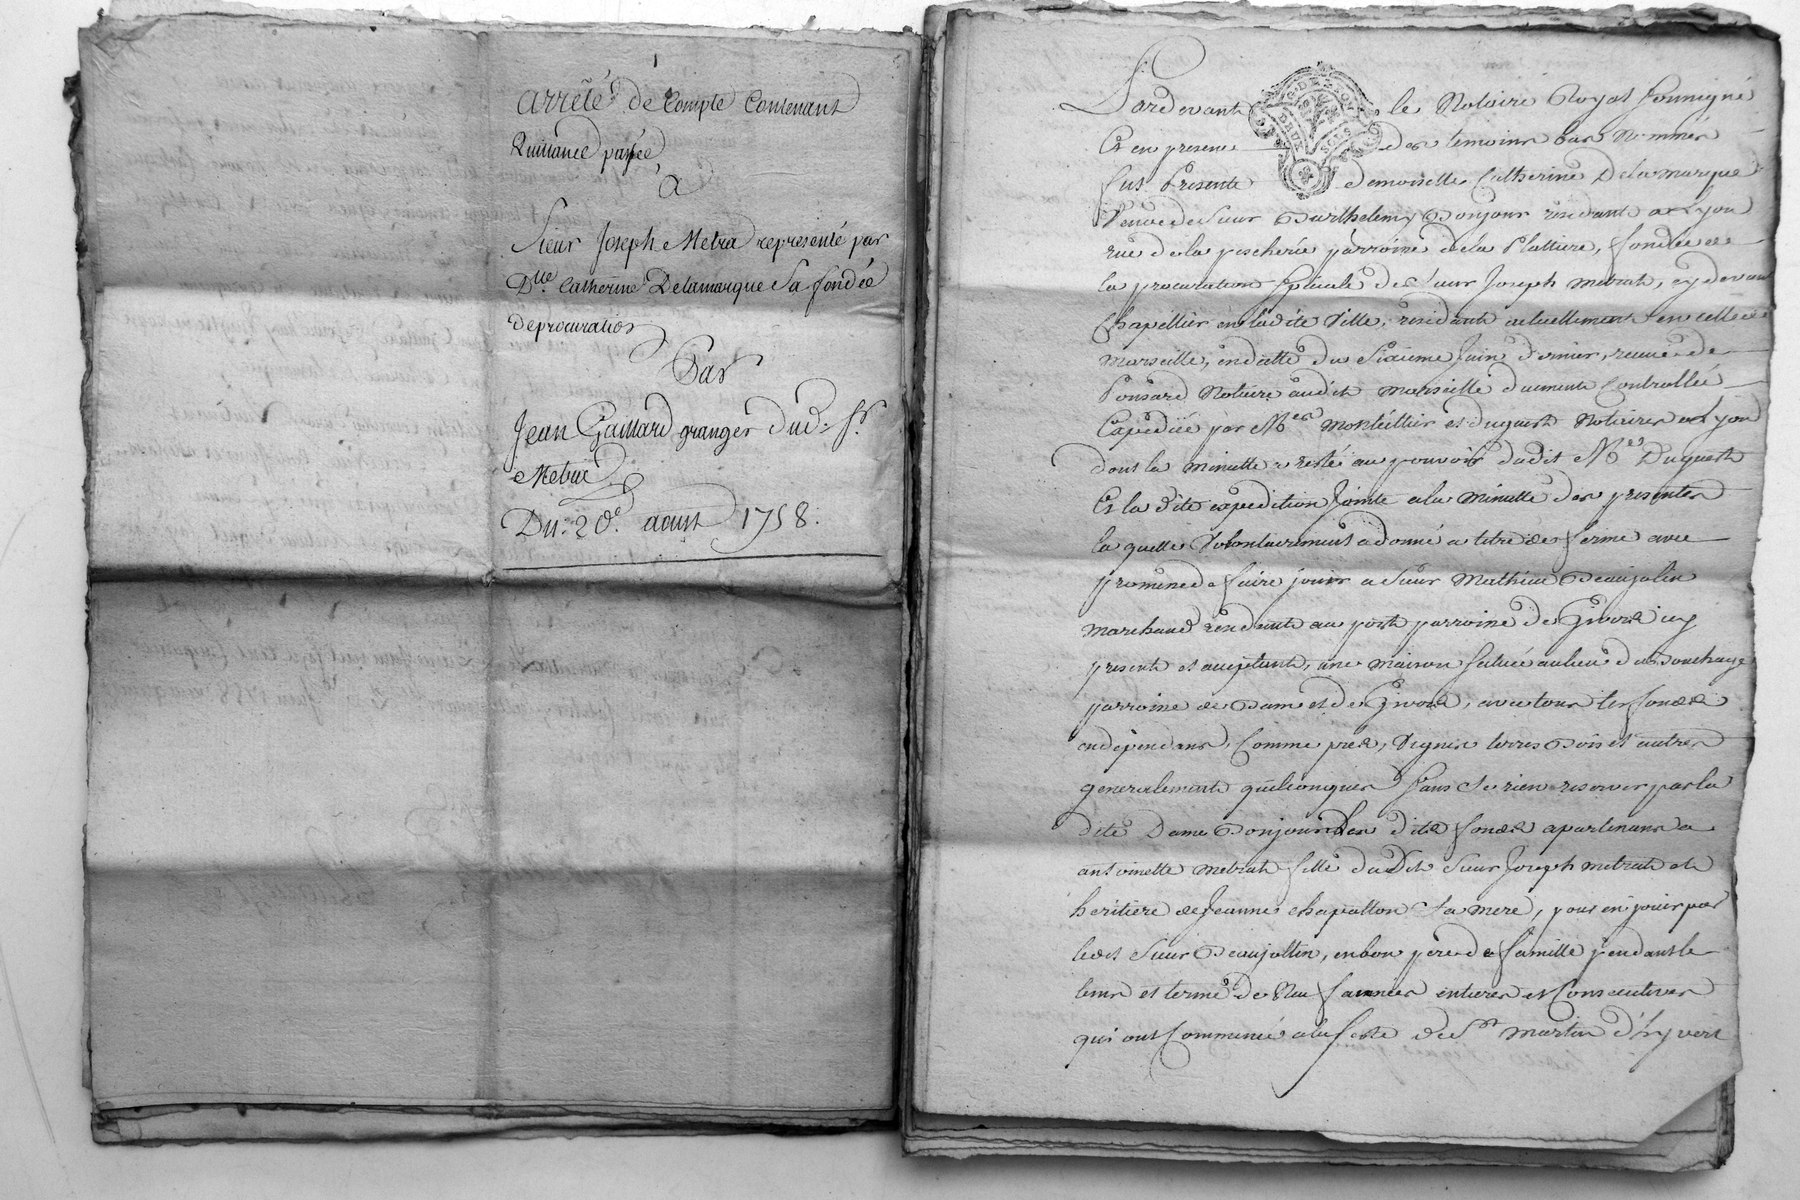 arrêté de Compte Contenant
Quittance passée
a
Sieur Joseph Metra representé par
Dlle. Catherine Delamarque Sa fondée
de procuration
Par
Jean Gaillard granger dud. Sr.
Metra
Du: 20e. aoust 1758.
Pardevant le Notaire Royal Soussigné
Et en presence des temoins bas Nommés
fut Presente demoiselle Catherine Delamarque
Veuve de Sieur Barthelemy Bonjour residante a Lyon
rue de la pescherie parroisse de la Plattiere, fondée de
la procuration Speciale de Sieur Joseph Metrat, cy devant
Chapellier en ladite Ville, residant actuellement en celle de
Marseille, en datte du Sixieme Juin dernier, receue de
Ponsard Notaire audit Marseille duement Controllée
Expediée par Mes. Montellier et Duguest Notaires a Lyon
dont la minutte a resté au pouvoir dudit Me Duguest
Et la dite expedition Jointe a la Minutte des presentes
la quelle Volontairement a donné a titre de ferme avec
promesse de faire jouir a Sieur Mathieu Beaujolin
marchand residant au port parroisse de Givors icy
present et acceptant, une maison Situé au lieu du Bouchage
parroisse de Bans et de Givors, avec tous les fonds
en dependans, Comme prés, Vignes terres Bois et autres
generalement quelconques Sans Se rien reserver par la
dite Dame Bonjour les dits fonds apartenans a
antoinette Metrat fille dudit Sieur Joseph Metrat et
heritiere de Jeanne Chapotton Sa mere, pour en jouir par
ledit Sieur Beaujollin, en bon pere de famille pendant le
tems et terme de Neuf années entieres et Consecutives
qui ont Commencé a la feste de St Martin d'hyvert